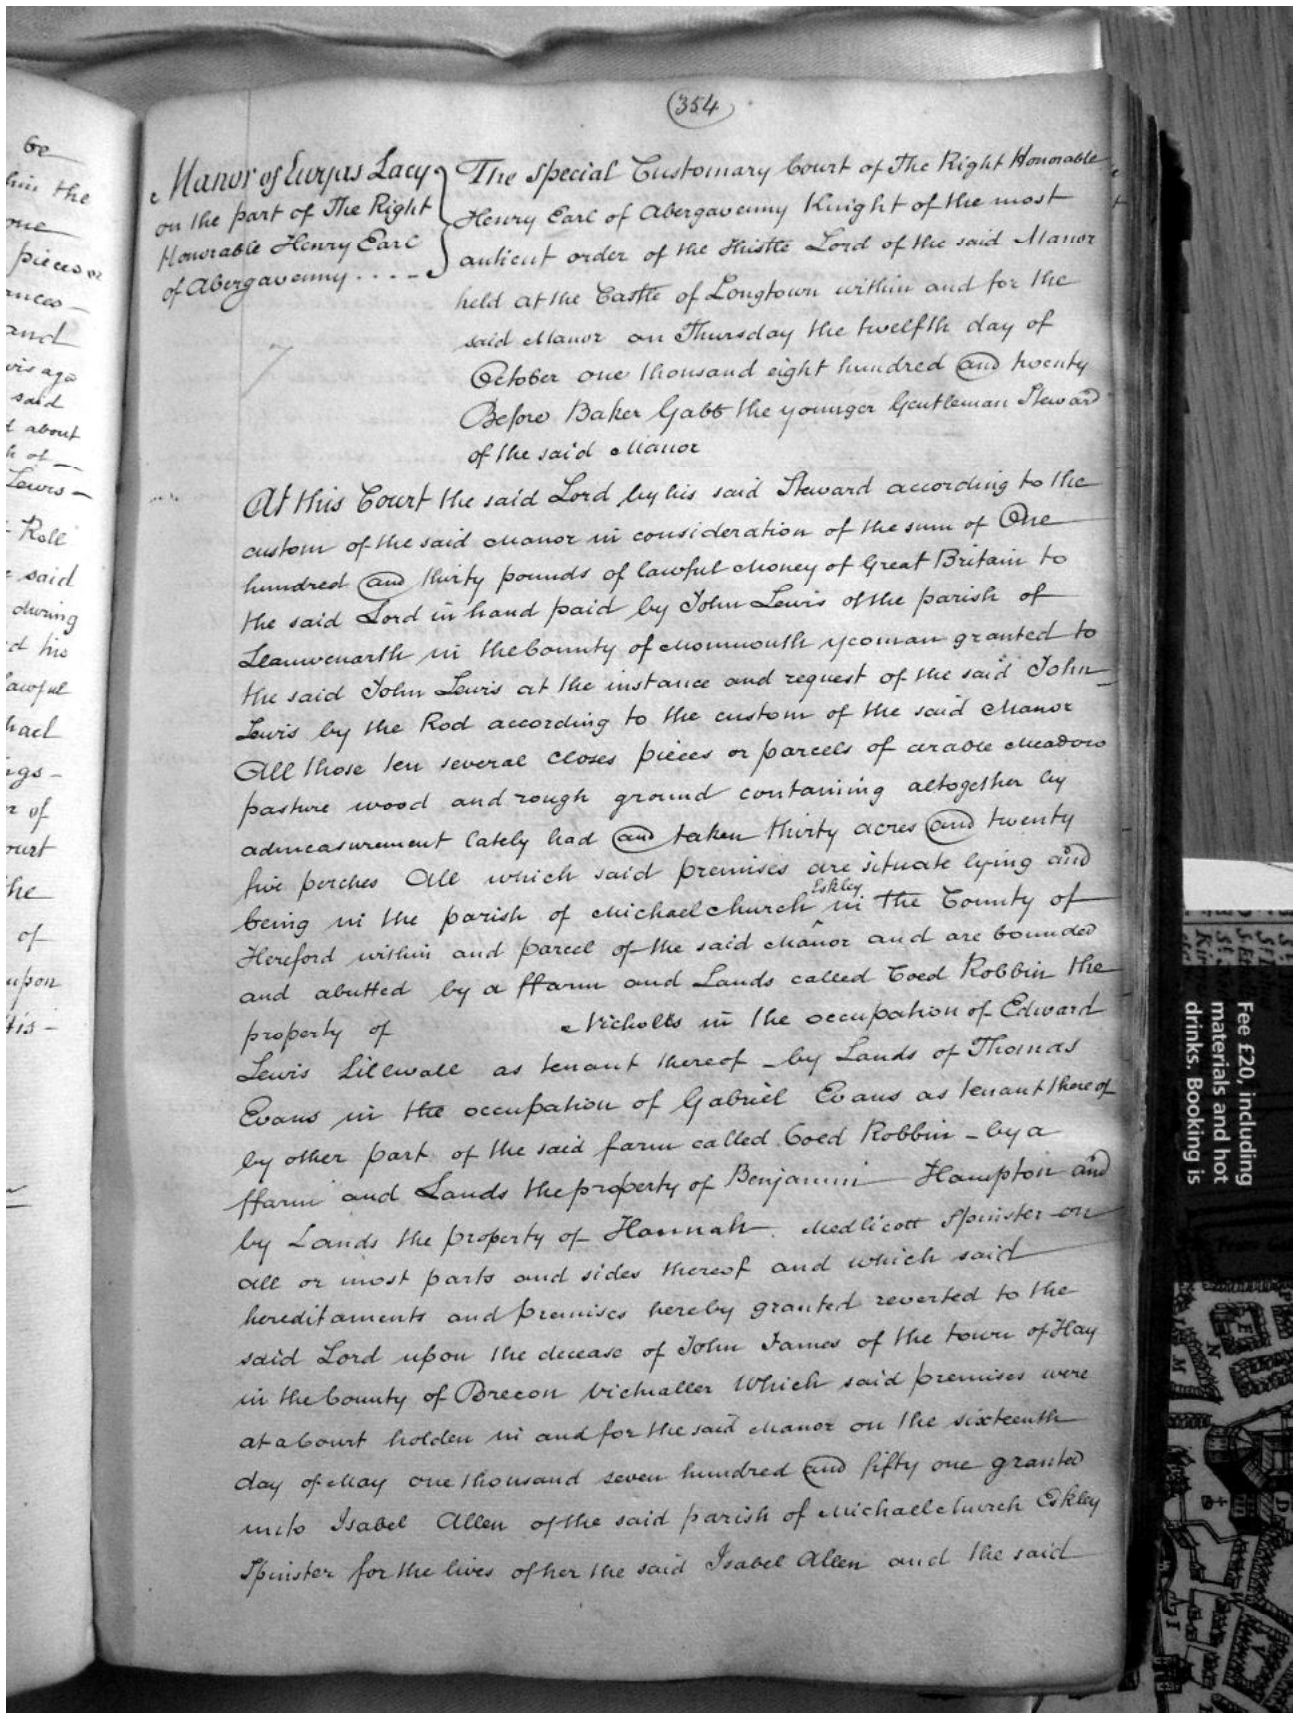 354
Manor of Ewyas Lacy
on the part of The Right
Honorable Henry Earl
of Abergavenny . . . . -
The Special Customary Court of The Right Honorable
Henry Earl of Abergavenny Knight of the most
antient order of the Thistle Lord of the said Manor
held at the Castle of Longtown within and for the
said Manor on Thursday the twelfth day of
October one thousand eight hundred and twenty
Before Baker Gabb the younger Gentleman Steward
of the said Manor
At this Court the said Lord by his said Steward according to the
custom of the said Manor in consideration of the sum of One
hundred and thirty pounds of lawful Money of Great Britain to
the said Lord in hand paid by John Lewis of the parish of
Llanwenarth in the County of Monmouth yeoman granted to
the said John Lewis at the instance and request of the said John
Lewis by the Rod according to the custom of the said Manor
All those ten several closes pieces or parcels of arable Meadow
pasture wood and rough ground containing altogether by
admeasurement lately had and taken thirty acres and twenty
five perches All which said premises are situate lying and
being in the parish of Michaelchurch Eskley in the County of
Hereford within and parcel of the said Manor and are bounded
and abutted by a ffarm and Lands called Coed Robbin the
property of Nicholls in the occupation of Edward
Lewis Lillwall as tenant thereof - by Lands of Thomas
Evans in the occupation of Gabriel Evans as tenant thereof
by other part of the said farm called Coed Robbin - by a
ffarm and Lands the property of Benjamin Hampton and
by Lands the property of Hannah Medlicott Spinster on
all or most parts and sides thereof and which said
hereditaments and premises hereby granted reverted to the
said Lord upon the decease of John James of the town of Hay
in the County of Brecon Victualler Which said premises were
at a Court holden in and for the said Manor on the sixteenth
day of May one thousand seven hundred and fifty one granted
unto Isabel Allen of the said parish of Michaelchurch Eskley
Spinster for the lives of her the said Isabel Allen and the said
be
the
pieces or
and
said
about
Lewis -
Roll
said
during
his
of
the
of
upon
Fee £20, including
materials and hot
drinks. Booking is